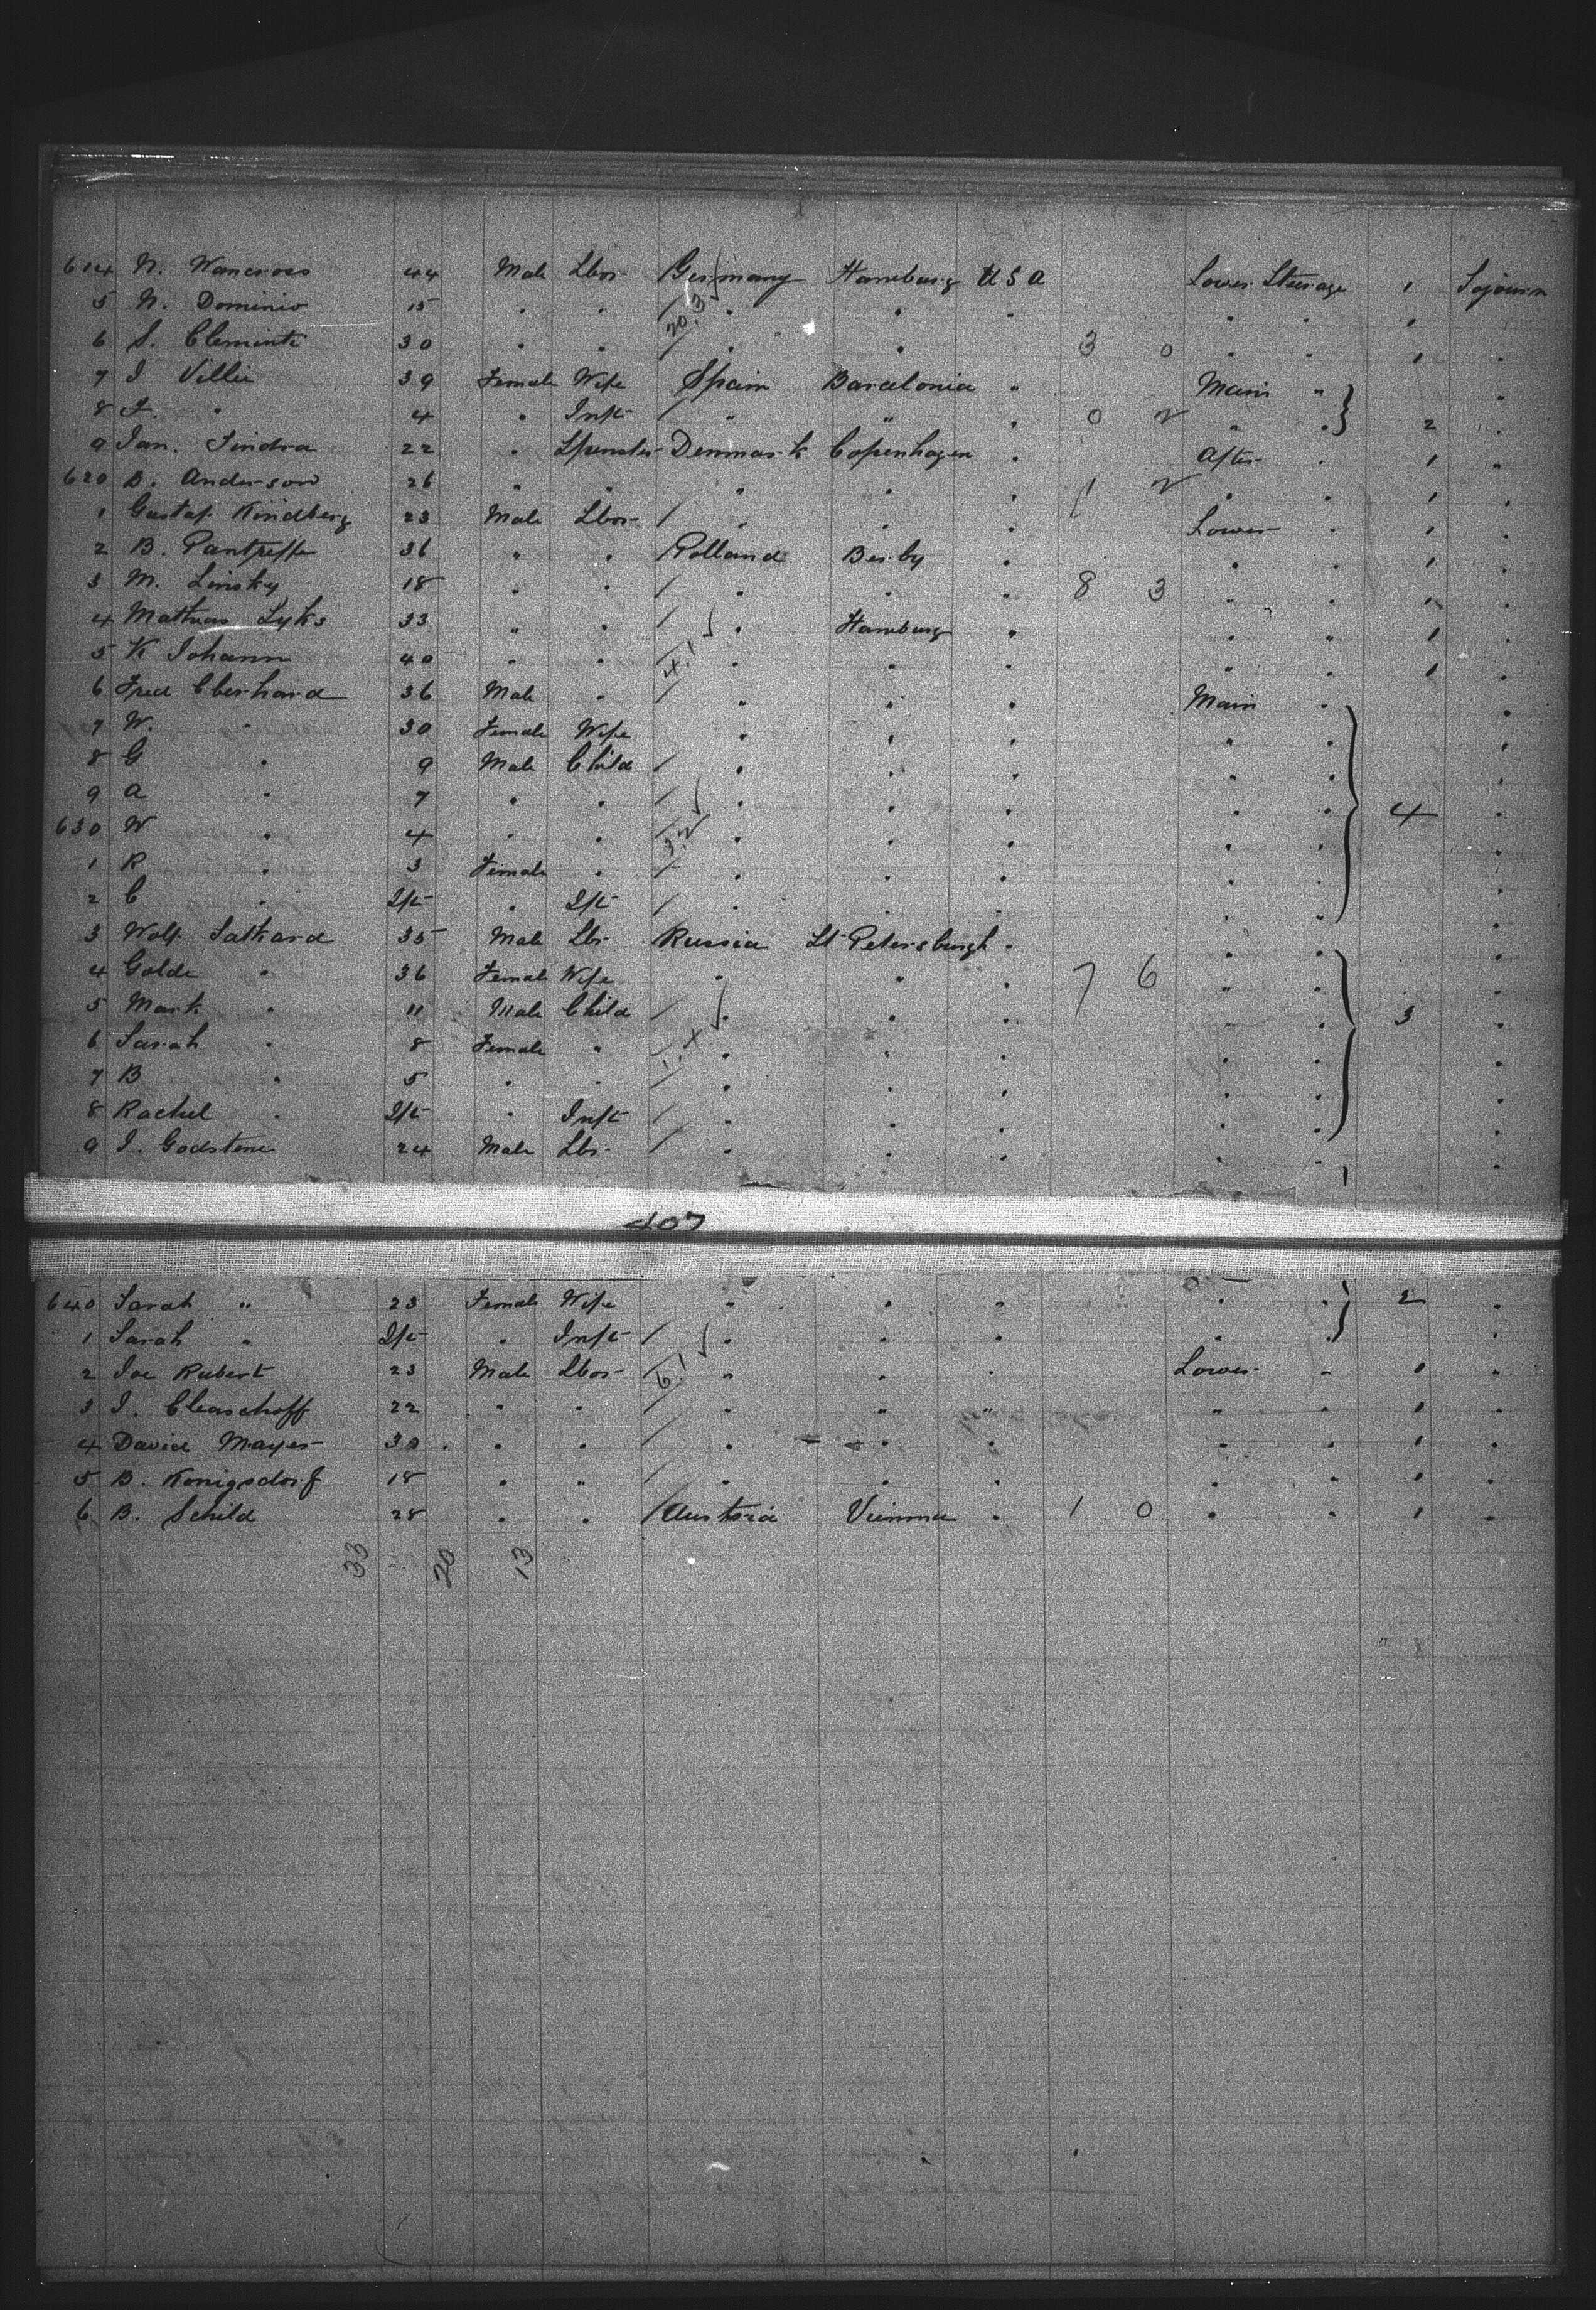 614 N. Wancross 44 Male Lbor Germany Hamburg U S A Lower Steerage 1 Sojourn
5 N. Dominio 15 " " " " " " " 1 "
20.3
6 S. Cleminte 30 " " " " " 3 0 " " 1 "
7 I Villie 39 Female Wife Spain Barcelonia " Main " "
8 F. " 4 " Inft " " " 0 2 " " 2 "
9 Jan. Jindra 22 " Spinster Denmark Copenhagen " After " 1 "
620 B. Anderson 26 " " " " " 1 2 " " 1 "
1 Gustaf Kindberg 23 Male Lbor " " " Lower " 1 "
2 B. 36 " " Polland Berby " " " 1 "
3 M. Linsky 18 " " " " " 8 3 " " 1 "
4 Mathias Lyks 33 " " " Hamburg " " " 1 "
5 K Johann 40 " " " " " " " 1 "
4.1
6 Fred Eberhard 36 Male " " " " Main " "
7 W. " 30 Female Wife " " " " " "
8 G " 9 Male Child " " " " " "
9 A " 7 " " " " " " " 4 "
630 W " 4 " " " " " " " "
3.2
1 R " 3 Female " " " " " " "
2 C " Ift " Ift " " " " " "
3 Wolf Sathard 35 Male Lbr Russia St Petersburgh " " " "
4 Golde " 36 Female Wife " " " 7 6 " " "
5 Mark " 11 Male Child " " " " " 3 "
6 Sarah " 8 Female " " " " " " "
7 B " 5 " " " " " " " "
8 Rachel " Ift " Inft " " " " " "
9 I. Godstene 24 Male Lbr " " " " " "
407
640 Sarah " 23 Female Wife " " " " " 2 "
1 Sarah " Ift " Inft " " " " " "
2 Joe Rubert 23 Male Lbor " " " Lower " 1 "
6.1
3 I. Cleaschoff 22 " " " " " " " 1 "
4 David Mayer 30 " " " " " " " 1 "
5 B. Konigsdorf 18 " " " " " " " 1 "
6 B. Schild 28 " " Austria Vienna " 1 0 " " 1 "
33 20 13